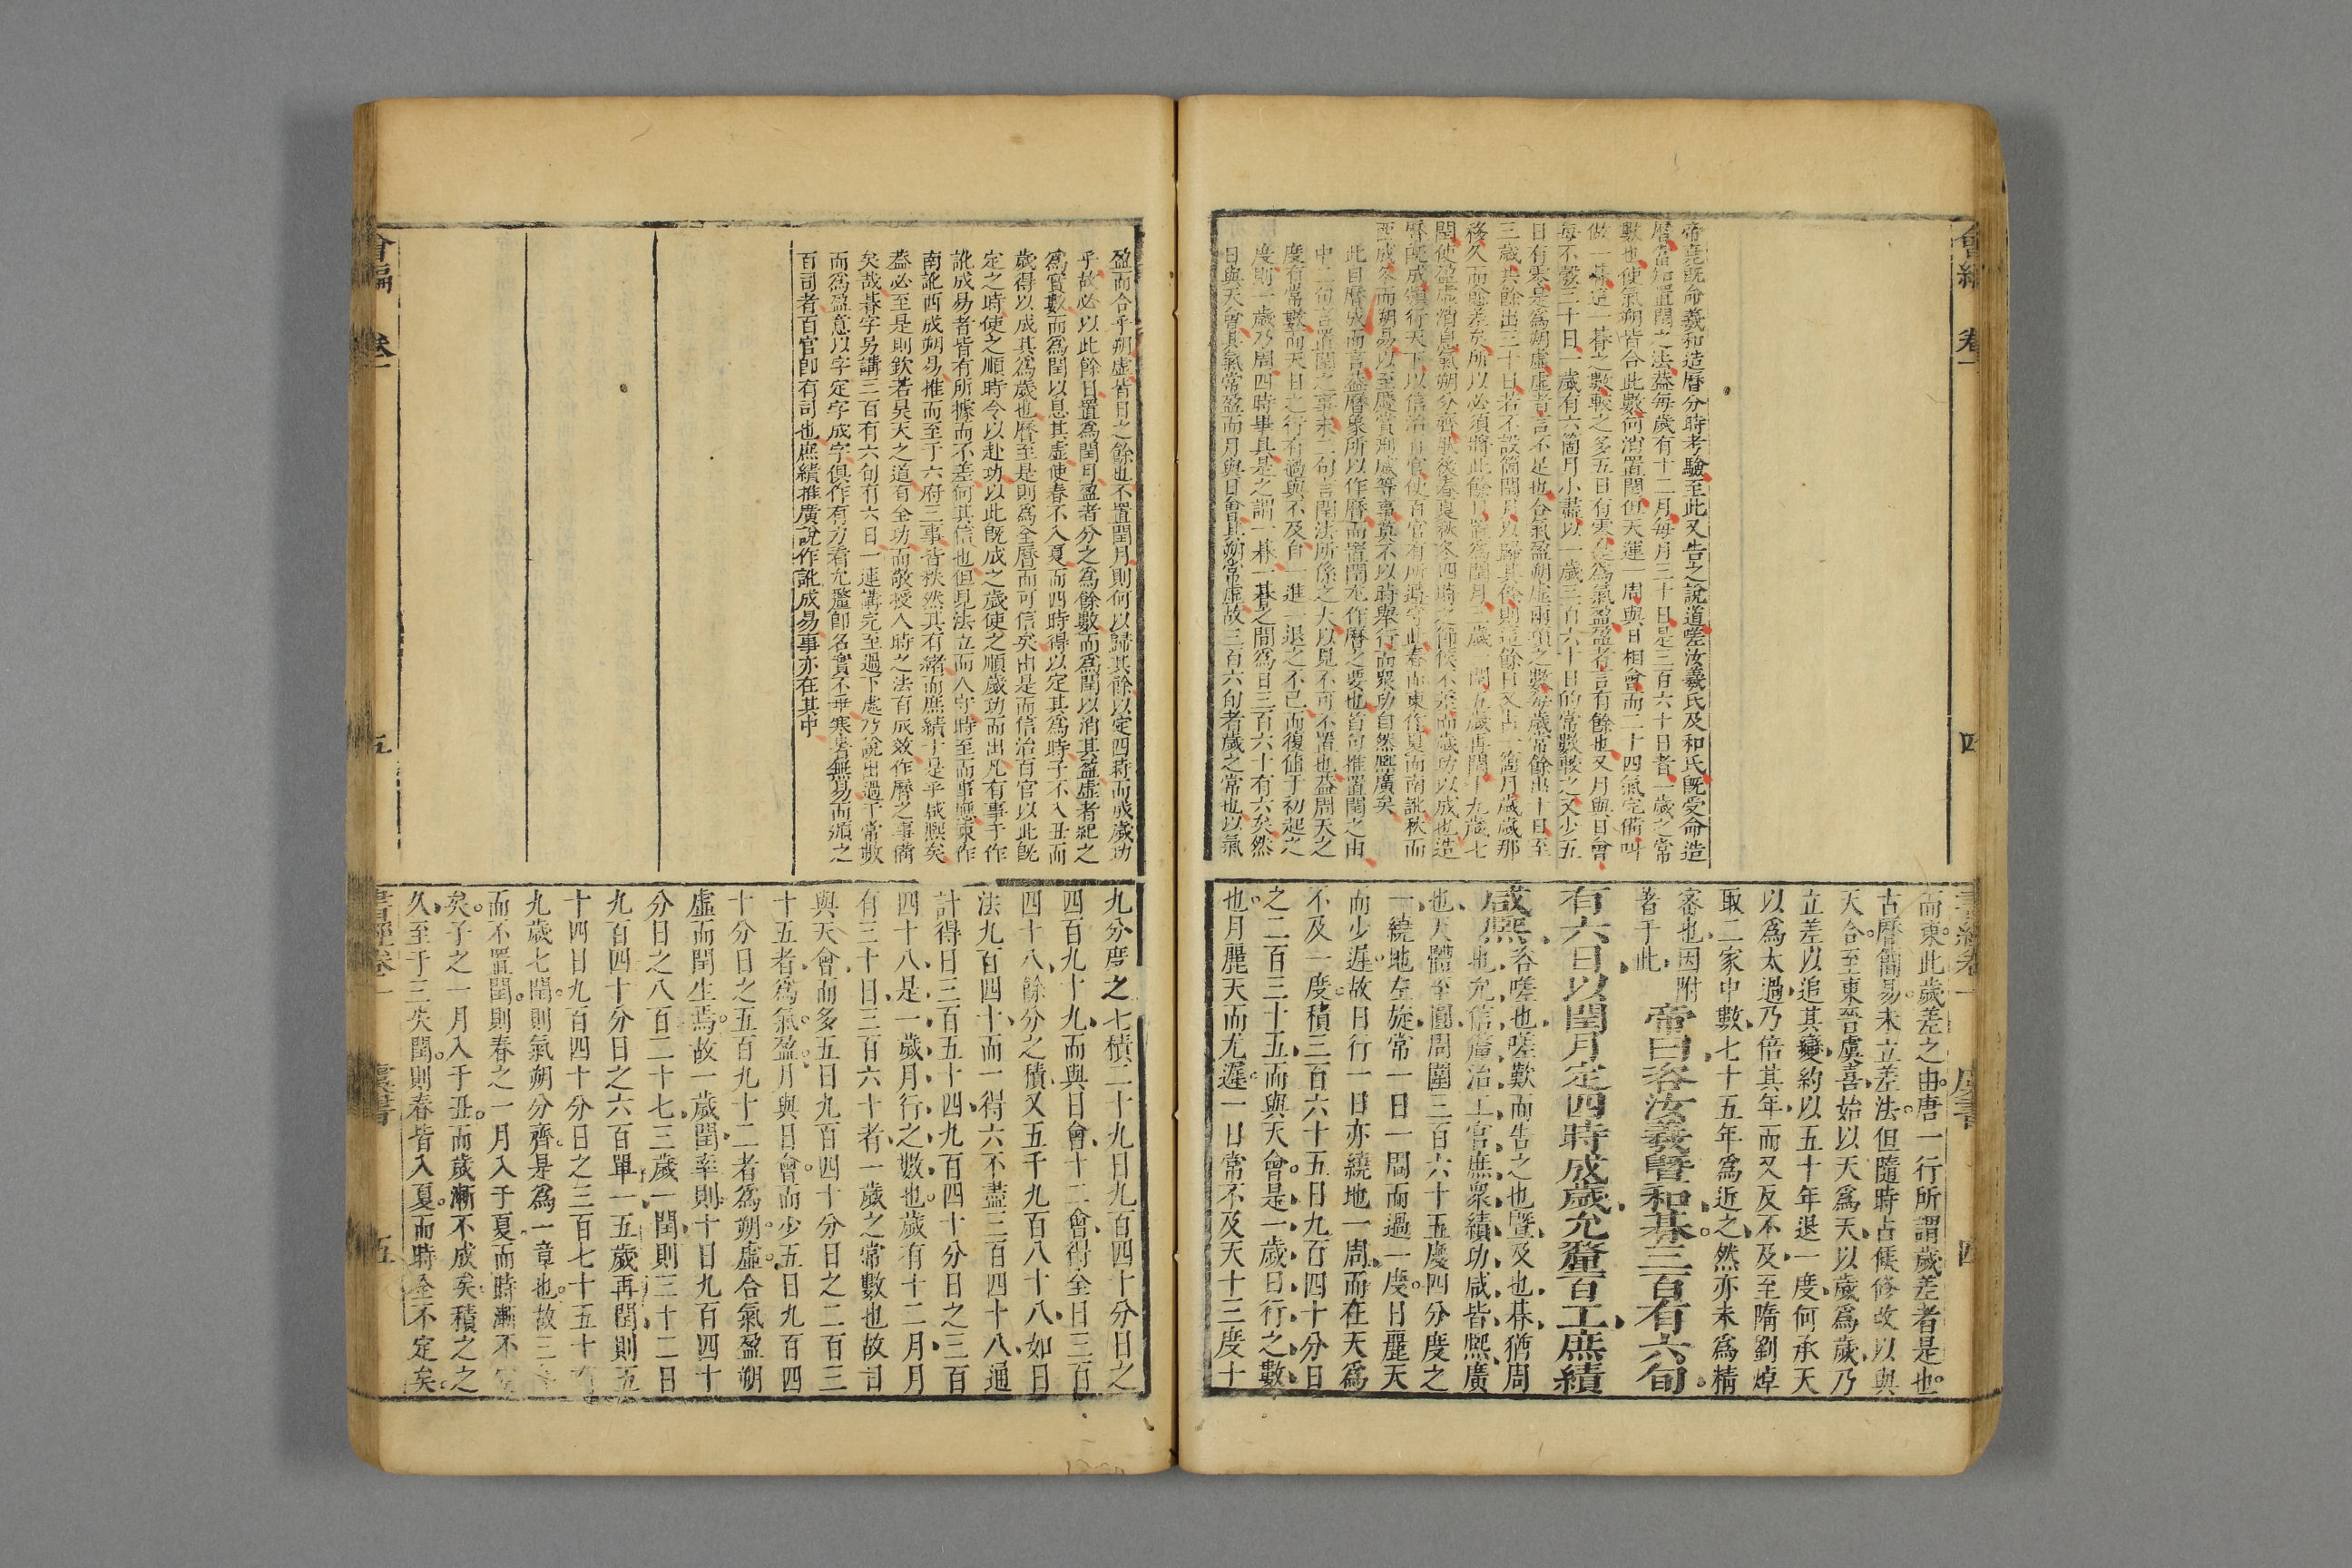 帝堯旣命羲和造曆分時考驗至此又告之說道嗟汝羲氏及和氏旣受命造
曆當知置閏之法蓋每歲有十二月每月三十日是三百六十日者一歲之常
數也使氣朔皆合此數何消置閏但天運一周與日相會而二十四氣完備叫
做一朞這一朞之數較之多五日有零是爲氣盈盈者言有餘也又月與日會
每不彀三十日一歲有六箇月小盡以一歲三百六十日的常數較之又少五
日有零是爲朔虛虛者言不足也合氣盈朔虛兩項之數每歲常餘出十日至
三歲共餘出三十日若不設箇閏月以歸其餘則這餘日又占一箇月歲歲那
移久而愈差矣所以必須將此餘日置爲閏月三歲一閏五歲再閏十九歲七
閏使盈虛消息氣朔分齊然後春夏秋冬四時之節候不差而歲功以成也造
曆旣成頒行天下以信治百官使百官有所遵守此春而東作夏而南訛秋而
西成冬而朔易以至慶賞刑威等事莫不以時舉行而衆功自然熙廣矣
此自曆成而言蓋曆象所以作曆而置閏尤作曆之要也首句推置閏之由
中二句言置閏之事末二句言閏法所係之大以見不可不置也蓋周天之
度有常數而天日之行有過與不及自一進一退之不已而復値于初起之
度則一歲乃周四時畢具是之謂一朞一朞之間爲日三百六十有六矣然
日與天會其氣常盈而月與日會其朔常虛故三百六旬者歲之常也以氣
而東此歲差之由唐一行所謂歲差者是也
古曆簡易未立差法但隨時占候修改以與
天合至東晉虞喜始以天爲天以歲爲歲乃
立差以追其變約以五十年退一度何承天
以爲太過乃倍其年而又反不及至隋劉焯
取二家中數七十五年爲近之然亦未爲精
密也因附著于此
帝曰咨汝羲曁和朞三百有六旬
有六日以閏月定四時成歲允釐百工庶績
咸熙咨嗟也嗟歎而告之也曁及也朞猶周
也允信釐治工官庶衆績功咸皆熙廣
也天體至圓周圍三百六十五度四分度之
一繞地左旋常一日一周而過一度日麗天
而少遲故日行一日亦繞地一周而在天爲
不及一度積三百六十五日九百四十分日
之二百三十五而與天會是一歲日行之數
也月麗天而尤遲一日常不及天十三度十
盈而合乎朔虛皆日之餘也不置閏月則何以歸其餘以定四時而成歲功
乎故必以此餘日置爲閏月盈者分之爲餘數而爲閏以消其盈虛者紀之
爲實數而爲閏以息其虛使春不入夏而四時得以定其爲時子不入丑而
歲得以成其爲歲也曆至是則爲全曆而可信矣由是而信治百官以此旣
定之時使之順時令以赴功以此旣成之歲使之順歲功而出凡有事于作
訛成易者皆有所據而不差何其信也但見法立而人守時至而事應東作
南訛西成朔易推而至于六府三事皆秩然其有緒而庶績于是乎咸熙矣
蓋必至是則欽若昊天之道有全功而敬授人時之法有成效作曆之事備
矣哉朞字另講三百有六旬有六日一連講完至過下處乃說出過于常數
而爲盈意以字定字成字俱作有力看允釐卽名實不乖寒暑無易而頒之
百司者百官卽有司也庶績推廣說作訛成易事亦在其中
九分度之七積二十九日九百四十分日之
四百九十九而與日會十二會得全日三百
四十八餘分之積又五千九百八十八如日
法九百四十而一得六不盡三百四十八通
計得日三百五十四九百四十分日之三百
四十八是一歲月行之數也歲有十二月月
有三十日三百六十者一歲之常數也故日
與天會而多五日九百四十分日之二百三
十五者爲氣盈月與日會而少五日九百四
十分日之五百九十二者爲朔虛合氣盈朔
虛而閏生焉故一歲閏率則十日九百四十
分日之八百二十七三歲一閏則三十二日
九百四十分日之六百單一五歲再閏則五
十四日九百四十分日之三百七十五十有
九歲七閏則氣朔分齊是爲一章也故三年
而不置閏則春之一月入于夏而時漸不定
矣子之一月入于丑而歲漸不成矣積之之
久至于三失閏則春皆入夏而時全不定矣
會編 卷一 四
書經卷一 虞書 四
會編 卷一 五
書經卷一 虞書 五